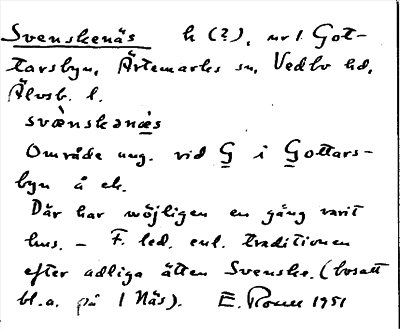 Svenskenäs h (?), nr 1 Got-
tarsbyn, Ärtemarks sn, Vedbo hd,
Älvsb. l.
svæ̀nskənæ̀s
Område ung. vid G i Gottars-
byn å ek.
Där har möjligen en gång varit
hus. – F. led. enl. traditionen
efter adliga ätten Svenske. (bosatt
bl.a. på 1 Näs). E. 1951